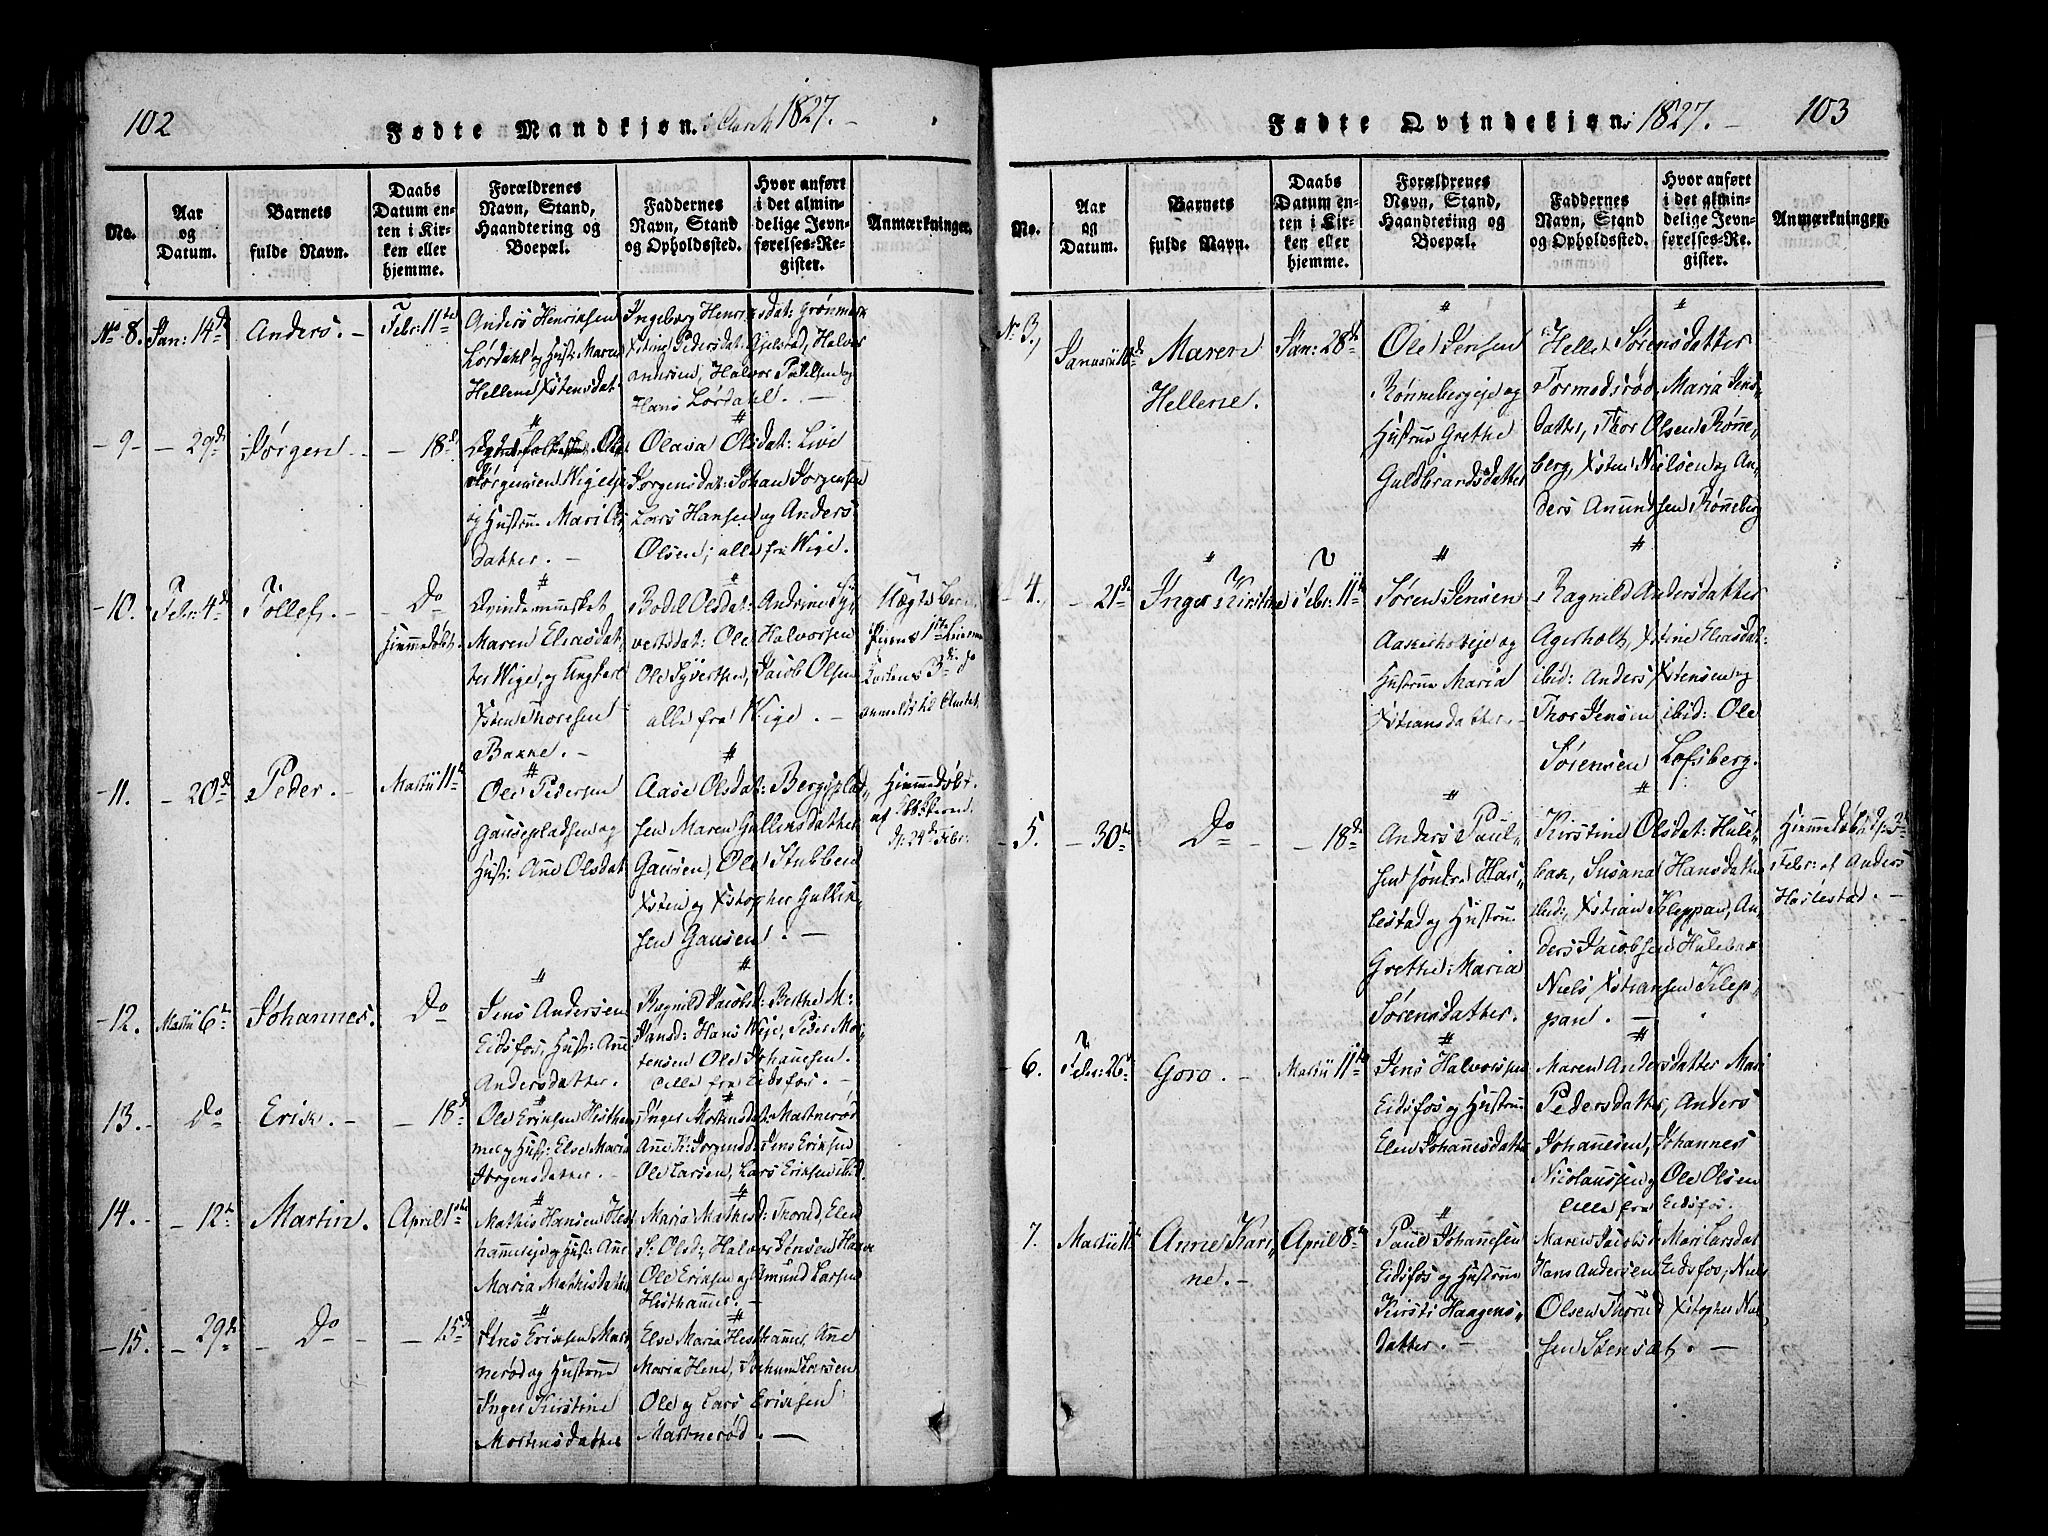 102
Fødte Mandkjøn. i Aaret 1827.
No.
Aar
og
Datum.
Barnets
fulde Navn.
Daabs
Datum en-
ten i Kir-
ken eller
hjemme.
Forældrenes
Navn, Stand,
Haandtering og
Boepæl.
Faddernes
Navn, Stand
og Opholdssted.
Hvor anført
i det almin-
delige Jevn-
førelses-Re-
gister.
Anmærkninger.
No 8. Jan: 14de Anders. Febr: 11te
Anders Henriksen
Lørdahl og Hust: Maren
Hellene Xstensdat:
Ingeborg Henriksdat: Grønmark
Xstine Pedersdat: Halvor
Andersen, Halvor Paulsen og
Hans Lørdahl.
9 29de Jørgen 18de
Jørgensen Wigeje
og Hustrue Mari Ols
datter.
Olava Olsdat: Live
Jørgensdat: Johan Jørgensen
Lars Hansen og Anders
Olsen, alle fra Wige.
10. Febr: 4de Tollef. Do
Hiemmedøbt.
Qvindemennesket
Maren Eliasdat
ter Wige, og Ungkarl
Xsten Thoresen
Bakke.
Bodel Olsdat: Andrine Sy
vertsdat: Ole Halvorsen
Ole Syvertsen, Jacob Olsen
alle fra Wige.
Uægte Barn.
anmeldt til Amtet.
11. 20de Peder. Martii 11te
Ole Pedersen
Gausepladsen og
Hust: Ane Olsdat
Aase Olsdat: Bergsplad
sen Maren Gullinsdatter
Gausen, Ole Stubben
Xsten og Xstopher Gullik
sen Gausen.
Hiemmedøbt.
af
d: 24de Febr:
12. Martii 6te Johannes. Do
Jens Andersen
Eidsfos, Hust: Ane
Andersdatter.
Ragnild Jacobsd: Berthe M:
Hansd: Hans Weje, Peder Mor
tensen Ole Johanesen.
alle fra Eidsfos.
13. Do Erik. 18de
Ole Eriksen Hestham
mer og Hust: Else Maria
Jørgensdatter.
Inger Mortensdat: Martnerød
Ane K: Jørgensd: Jens Eriksen
Ole Larsen, Lars Eriksen ibid.
14. 12te Martin. April 1ste
Mathis Hansen Hest
hammereje og Hust: Ane
Maria Mathisdatter
Maria Mathisd: Thorud, Elen
S: Olsd: Halvor Jensen Hane
Ole Eriksen og Amund Larsen
Hesthammer.
15. 29de Do 15de
Jens Eriksen Mart
nerød og Hustrue
Inger Kirstine
Mortensdatter
Else Maria Hesthammer, Ane
Maria Hene, Jochum Larsen
Ole og Lars Eriksen
Martnerød.
Fødte Qvindekjøn i 1827. 103
No.
Aar
og
Datum.
Barnets
fulde Navn.
Daabs
Datum en-
ten i Kir-
ken eller
hjemme.
Forældrenes
Navn, Stand,
Haandtering og
Boepæl.
Faddernes
Navn, Stand
og Opholdsted.
Hvor anført
i det almin-
delige Jevn-
førelses-Re-
gister.
Anmærkninger.
No 3. Maren
Hellene. Jan: 28de
Ole Jensen
Rønnebergeje og
Hustrue Grethe
Guldbrandsdatter
Helle Sørensdatter
Tormodsrød, Maria Jens
datter, Thor Olsen Rønne
berg, Xsten Nielsen og An
ders Anundsen Rønneberg
4. 21de Inger Kirstine Febr: 11te
Søren Jensen
Hustrue Maria
Xstiansdatter.
Ragnild Andersdatter
Agerholt, Xstine Eliasdat:
ibid: Anders Xstensen og
Thor Jensen ibid: Ole
Sørensen Lofsberg.
5. 30te Do 18de
Anders Paul
sen søndre Har
lestad og Hustrue
Grethe Maria
Sørensdatter.
Kirstine Olsdat: Hule
bak, Susana Hansdatter
ibid:, Xstian Kleppan, An
ders Jacobsen Hulebak
Niels Xstiansen Klep
pan.
Hiemmedøbt d: 3de
Febr: af Anders
Harlestad.
6. Febr: 26de Goro. Martii 11te
Jens Halvorsen
Eidsfos og Hustrue
Elen Johannesdatter
Maren Andersdatter Mari
Pedersdatter, Anders
Johanesen, Johannes
Nicolaussen og Ole Olsen
alle fra Eidsfos.
7. Martii 11te Anne Kari
ne. April 8de
Paul Johanesen
Eidsfos og Hustrue
Kirsti Haagens
datter.
Maren Jacobsd: Mari Larsdat
Hans Andersen Eidsfos, Niels
Olsen Thorud Xstopher Niel
sen Stensæt.